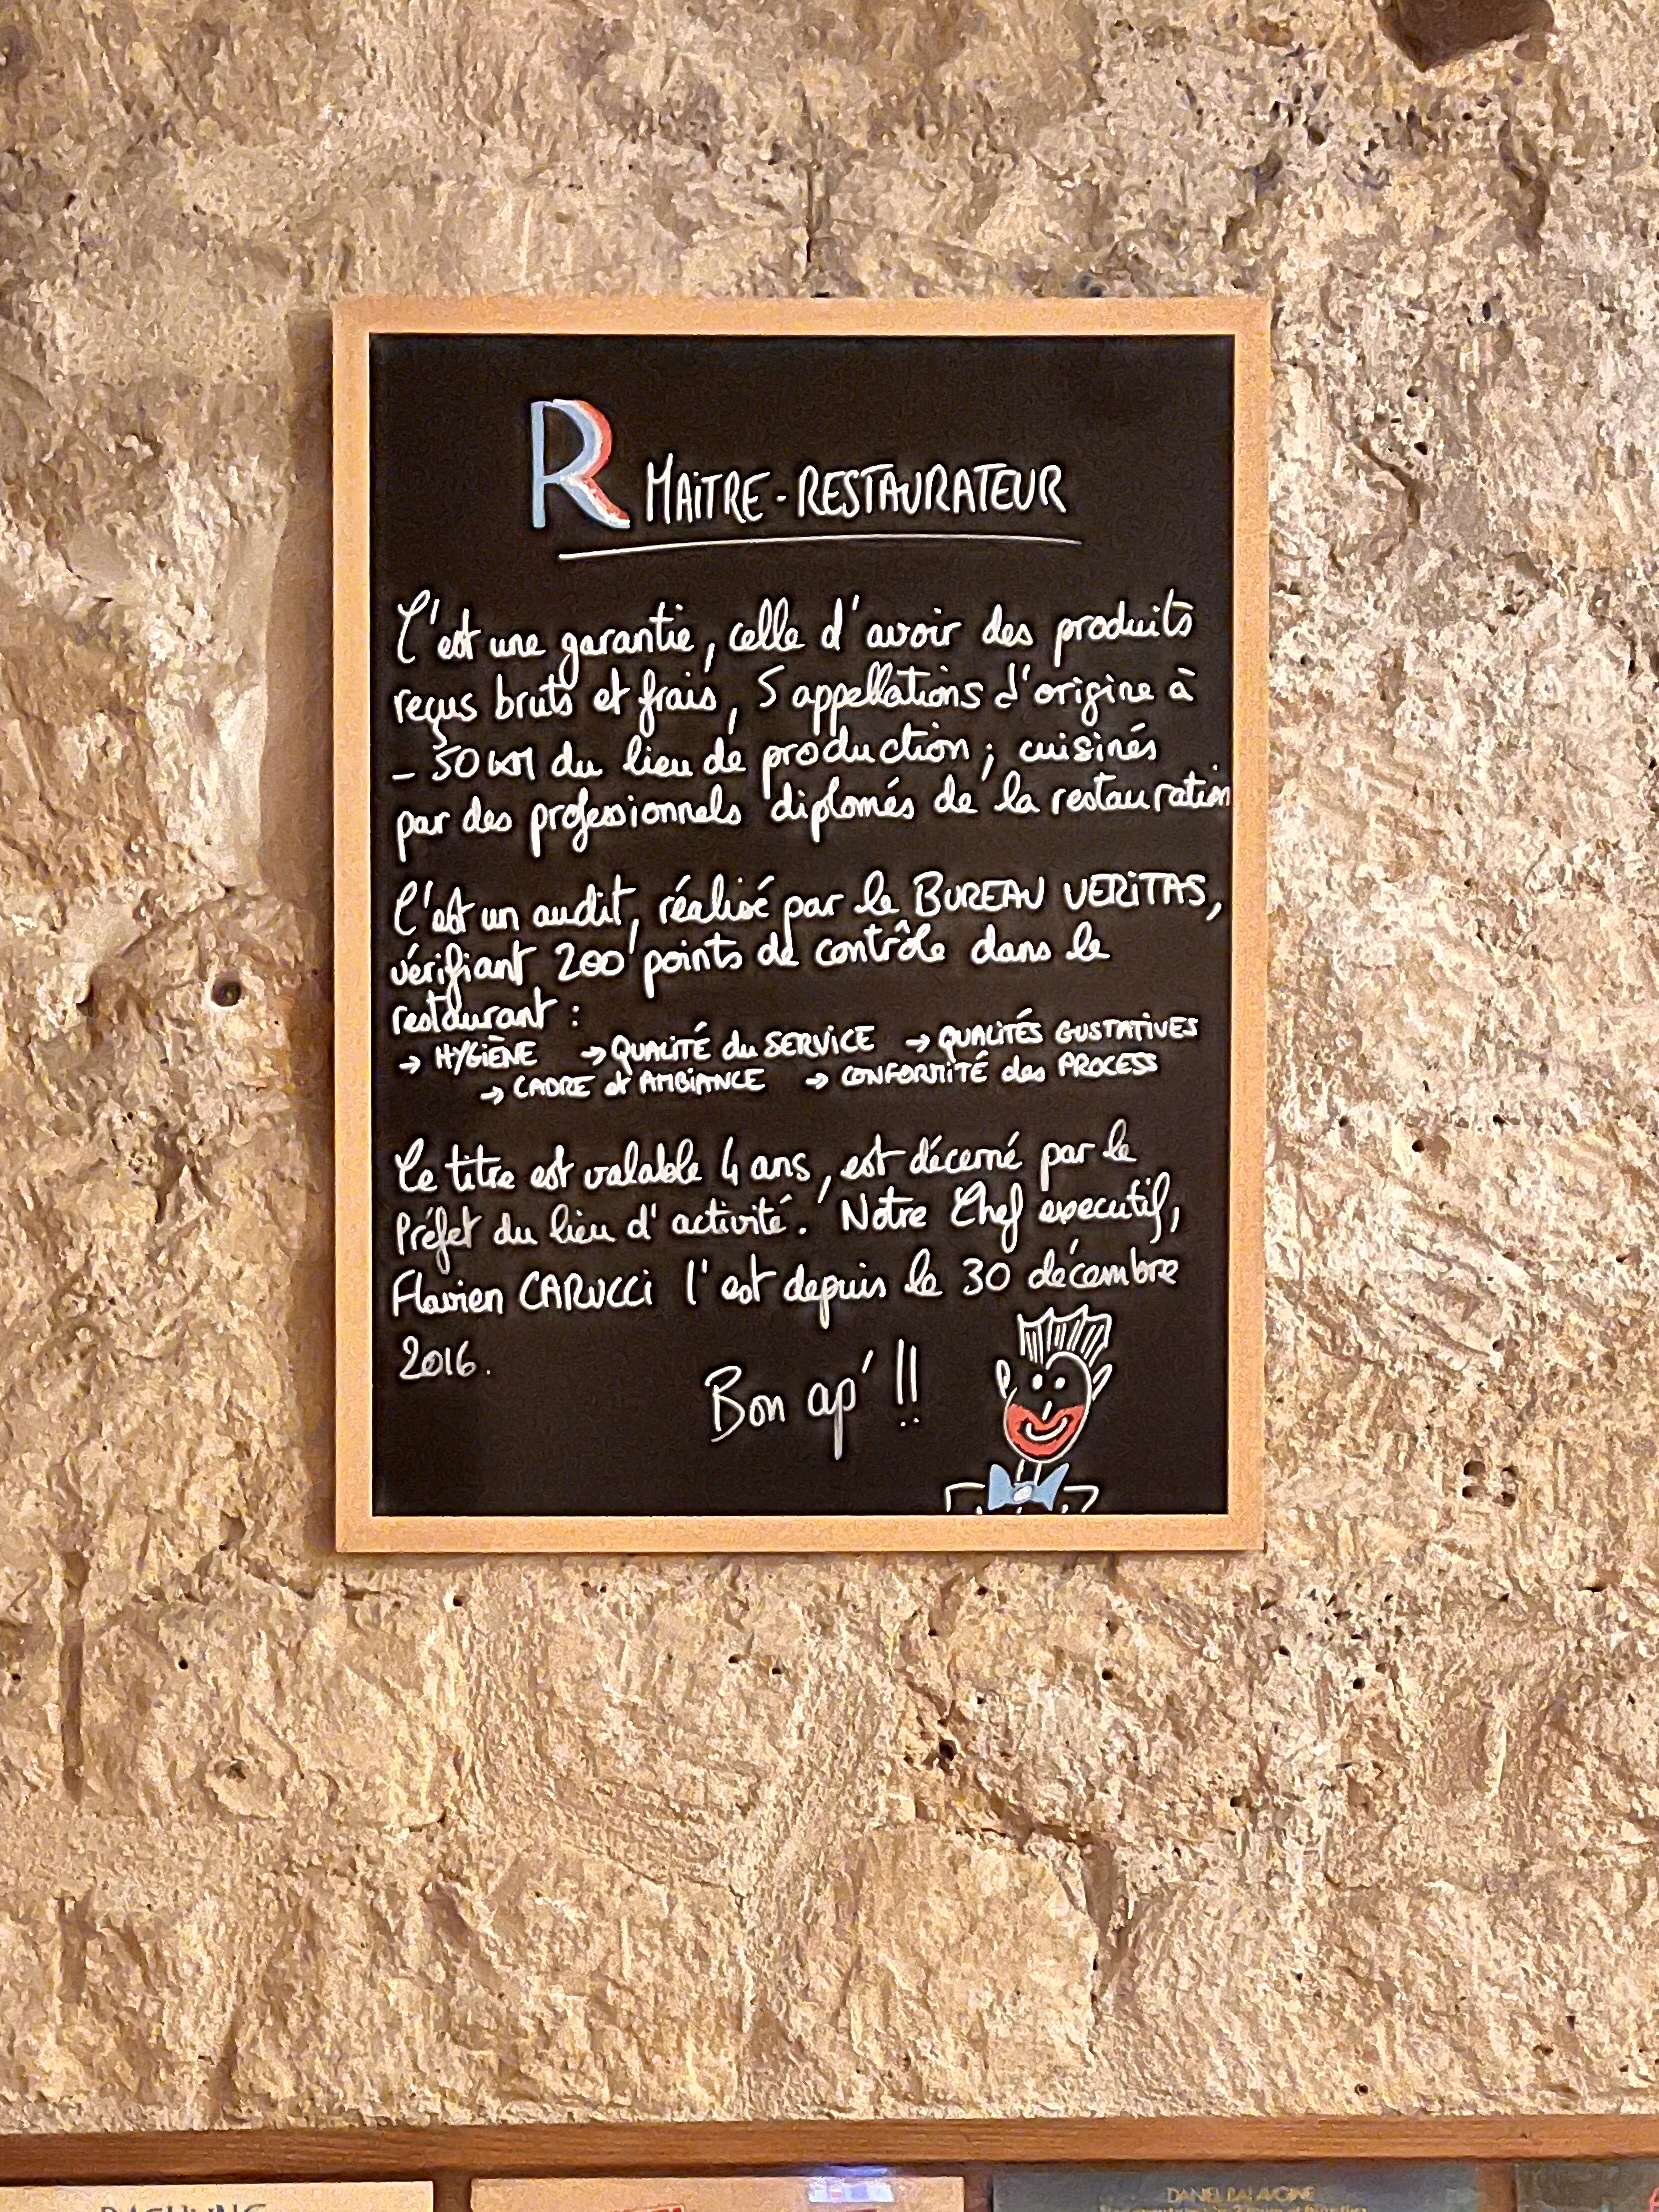 R MAITRE - RESTAURATEUR
C'est une garantie, celle d'avoir des produits
reçus bruts et frais, 5 appellations d'origine à
- 50 KM du lieu de production ; cuisinés
par des professionnels diplomés de la restauration
C'est un audit, réalisé par le BUREAU VERITAS,
vérifiant 200 points de contrôle dans le
restaurant :
→ HYGIÈNE → QUALITÉ du SERVICE → QUALITÉS GUSTATIVES
→ CADRE et AMBIANCE → CONFORMITÉ des PROCESS
Ce titre est valable 4 ans, est décerné par le
Préfet du lieu d'activité. Notre Chef executif,
Flavien CARUCCI l'est depuis le 30 décembre
2016.
Bon ap' !!
DANIEL BALAVOINE